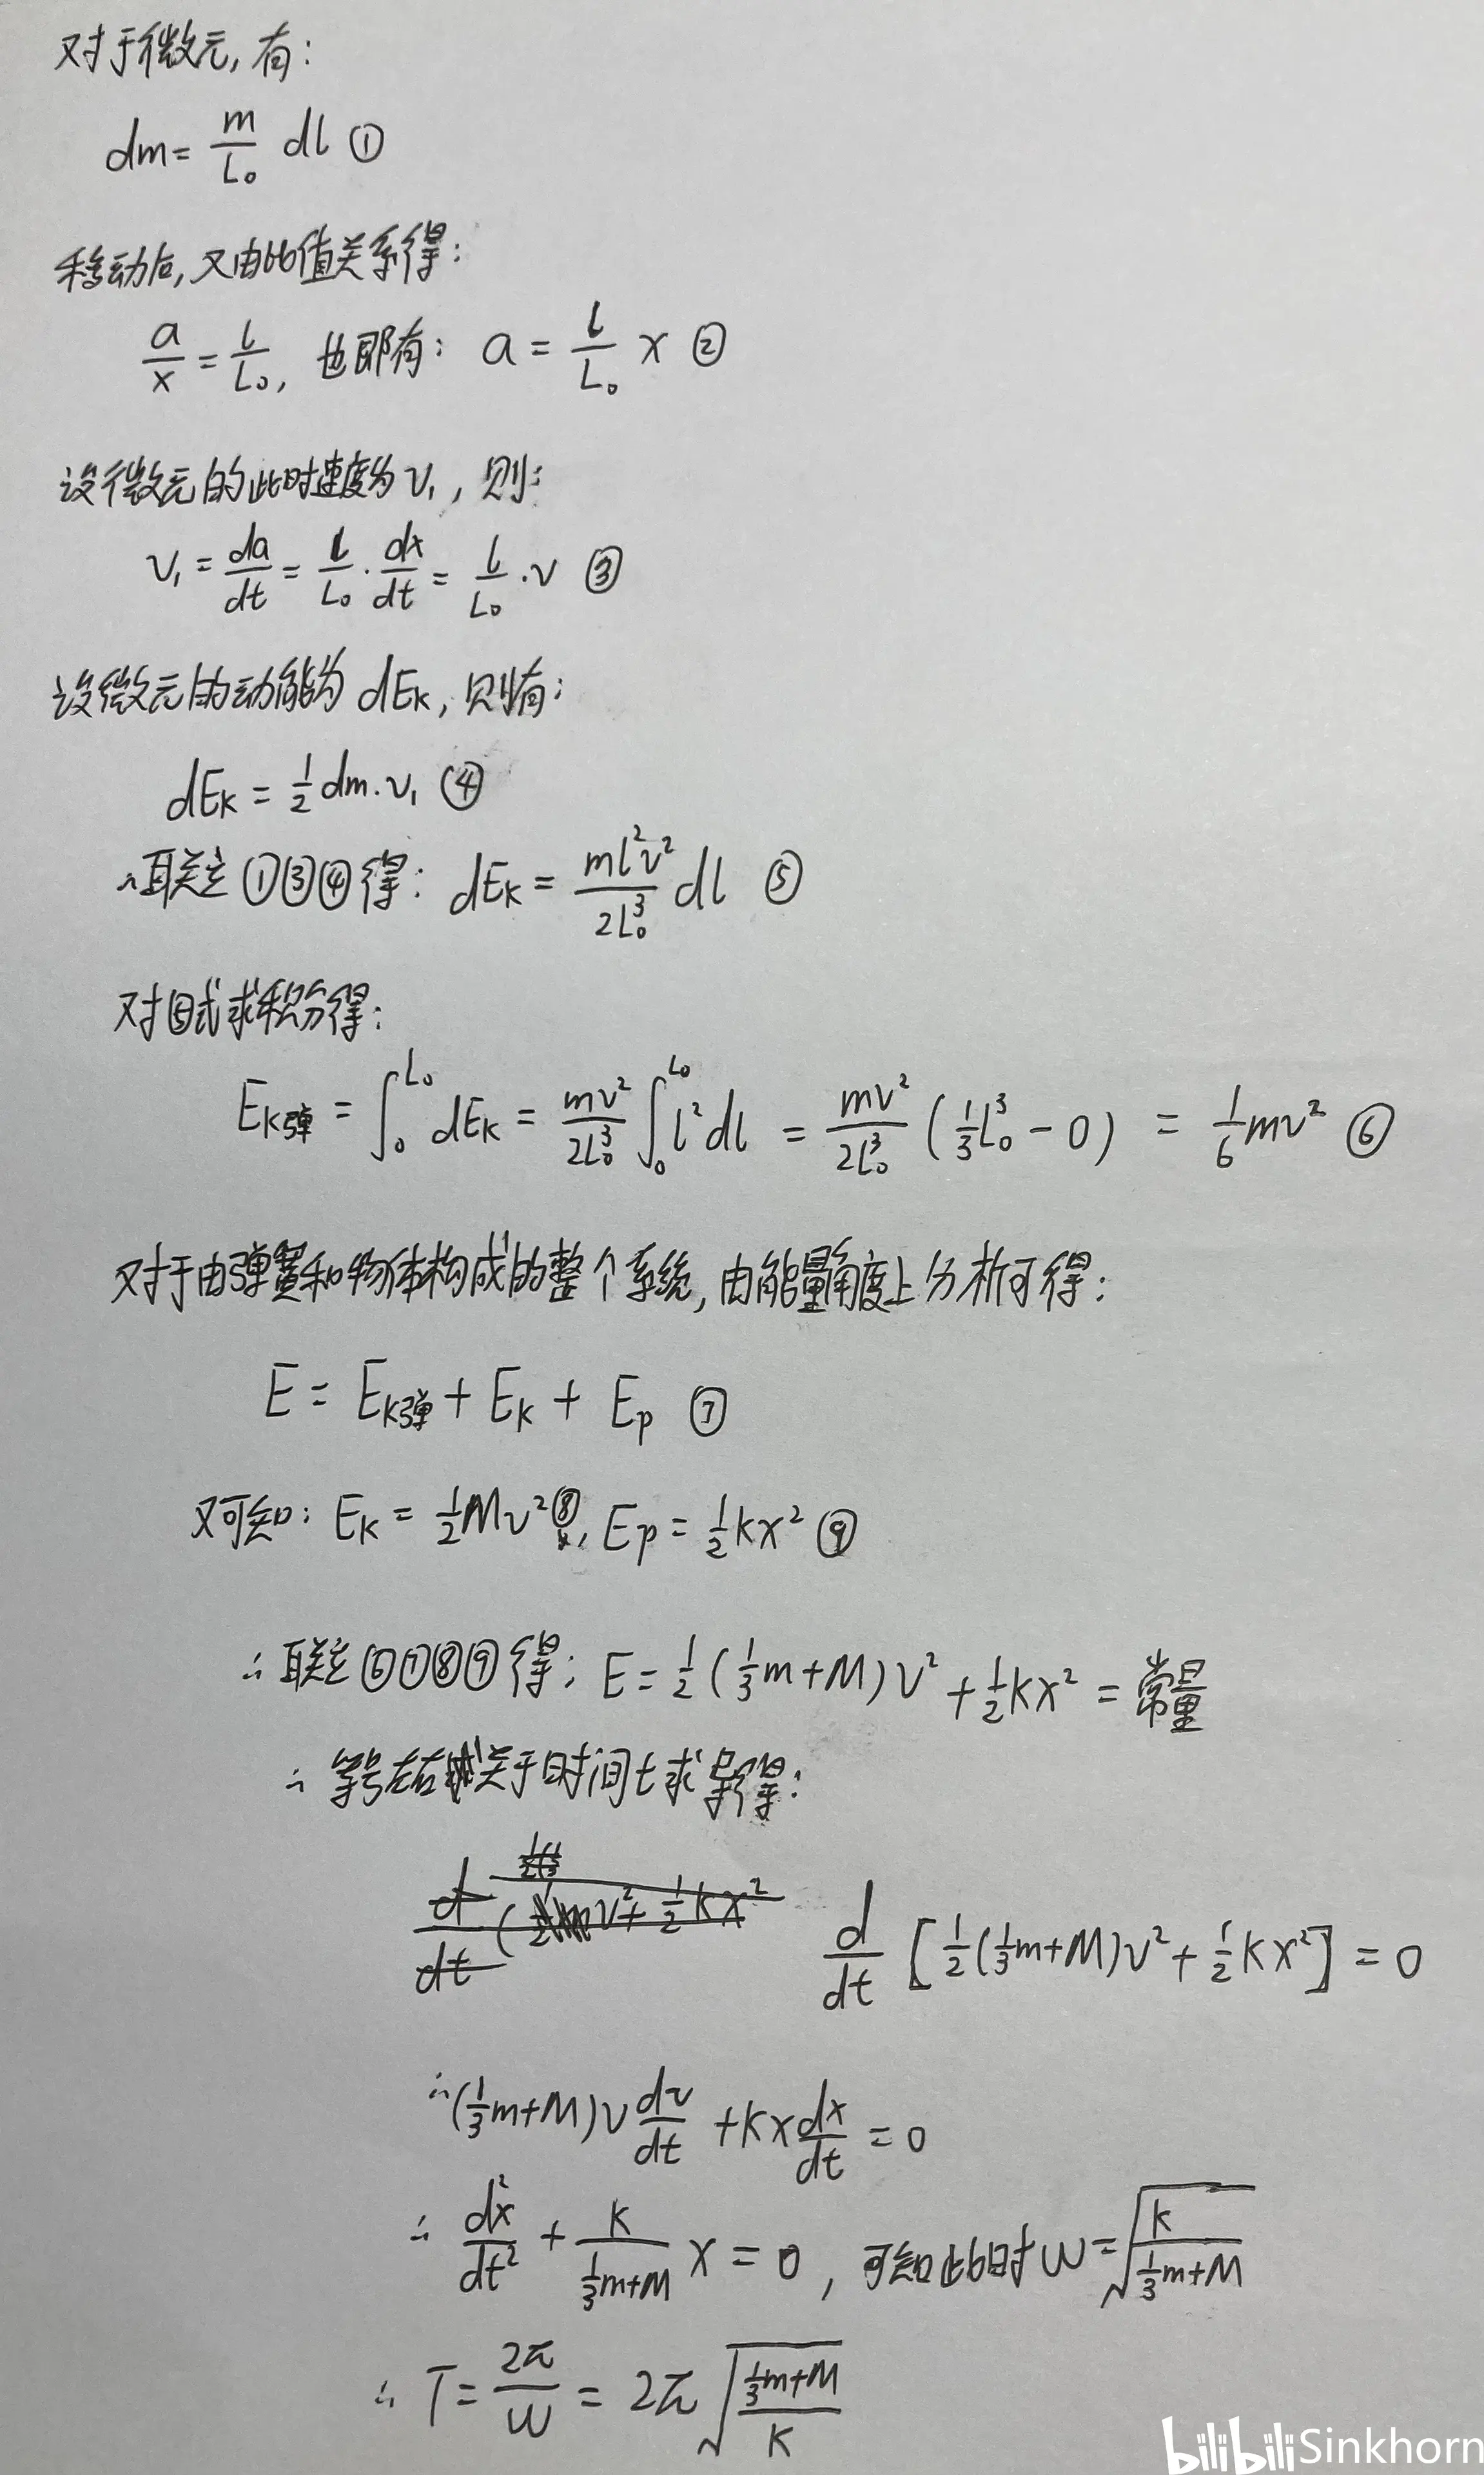 对于微元,有:
dm = m/L₀ dl ①
移动后,又由比值关系得:
a/x = l/L₀, 也即有: a = l/L₀ x ②
设微元的此时速度为 v₁, 则:
v₁ = da/dt = l/L₀ · dx/dt = l/L₀ · v ③
设微元的动能为 dEₖ, 则有:
dEₖ = 1/2 dm·v₁ ④
∴联立①③④得: dEₖ = ml²v²/2L₀³ dl ⑤
对⑤式求积分得:
Eₖ弹 = ∫₀^L₀ dEₖ = mv²/2L₀³ ∫₀^L₀ l² dl = mv²/2L₀³ (1/3 L₀³ - 0) = 1/6 mv² ⑥
对于由弹簧和物体构成的整个系统,由能量角度上分析可得:
E = Eₖ弹 + Eₖ + Eₚ ⑦
又可知: Eₖ = 1/2 Mv² ⑧, Eₚ = 1/2 kx² ⑨
∴联立⑥⑦⑧⑨得: E = 1/2 (1/3 m+M) v² + 1/2 kx² = 常量
∴等号左右关于时间t求导得:
d/dt [1/2 (1/3 m+M) v² + 1/2 kx²] = 0
∴(1/3 m+M) v dv/dt + kx dx/dt = 0
∴ d²x/dt² + k/(1/3 m+M) x = 0, 可知此时 ω = √(k/(1/3 m+M))
∴ T = 2π/ω = 2π √((1/3 m+M)/k)
bilibili Sinkhorn